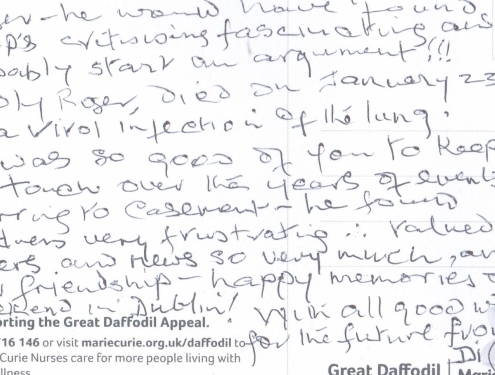 er - he would have found
P's critisising fascinating and
bably start an argument!!!
Roger, died on January 23
a viral infection of the lung.
was so good of you to keep
touch over the years of events
rring to Casement - he found
very frustrating ∴ valued
ers and news so very much, an
friendship - happy memories o
ekend in Dublin! With all good w
for the future from
Di
orting the Great Daffodil Appeal.
16 146 or visit mariecurie.org.uk/daffodil to
Curie Nurses care for more people living with
llness.
Great Daffodil
Mari